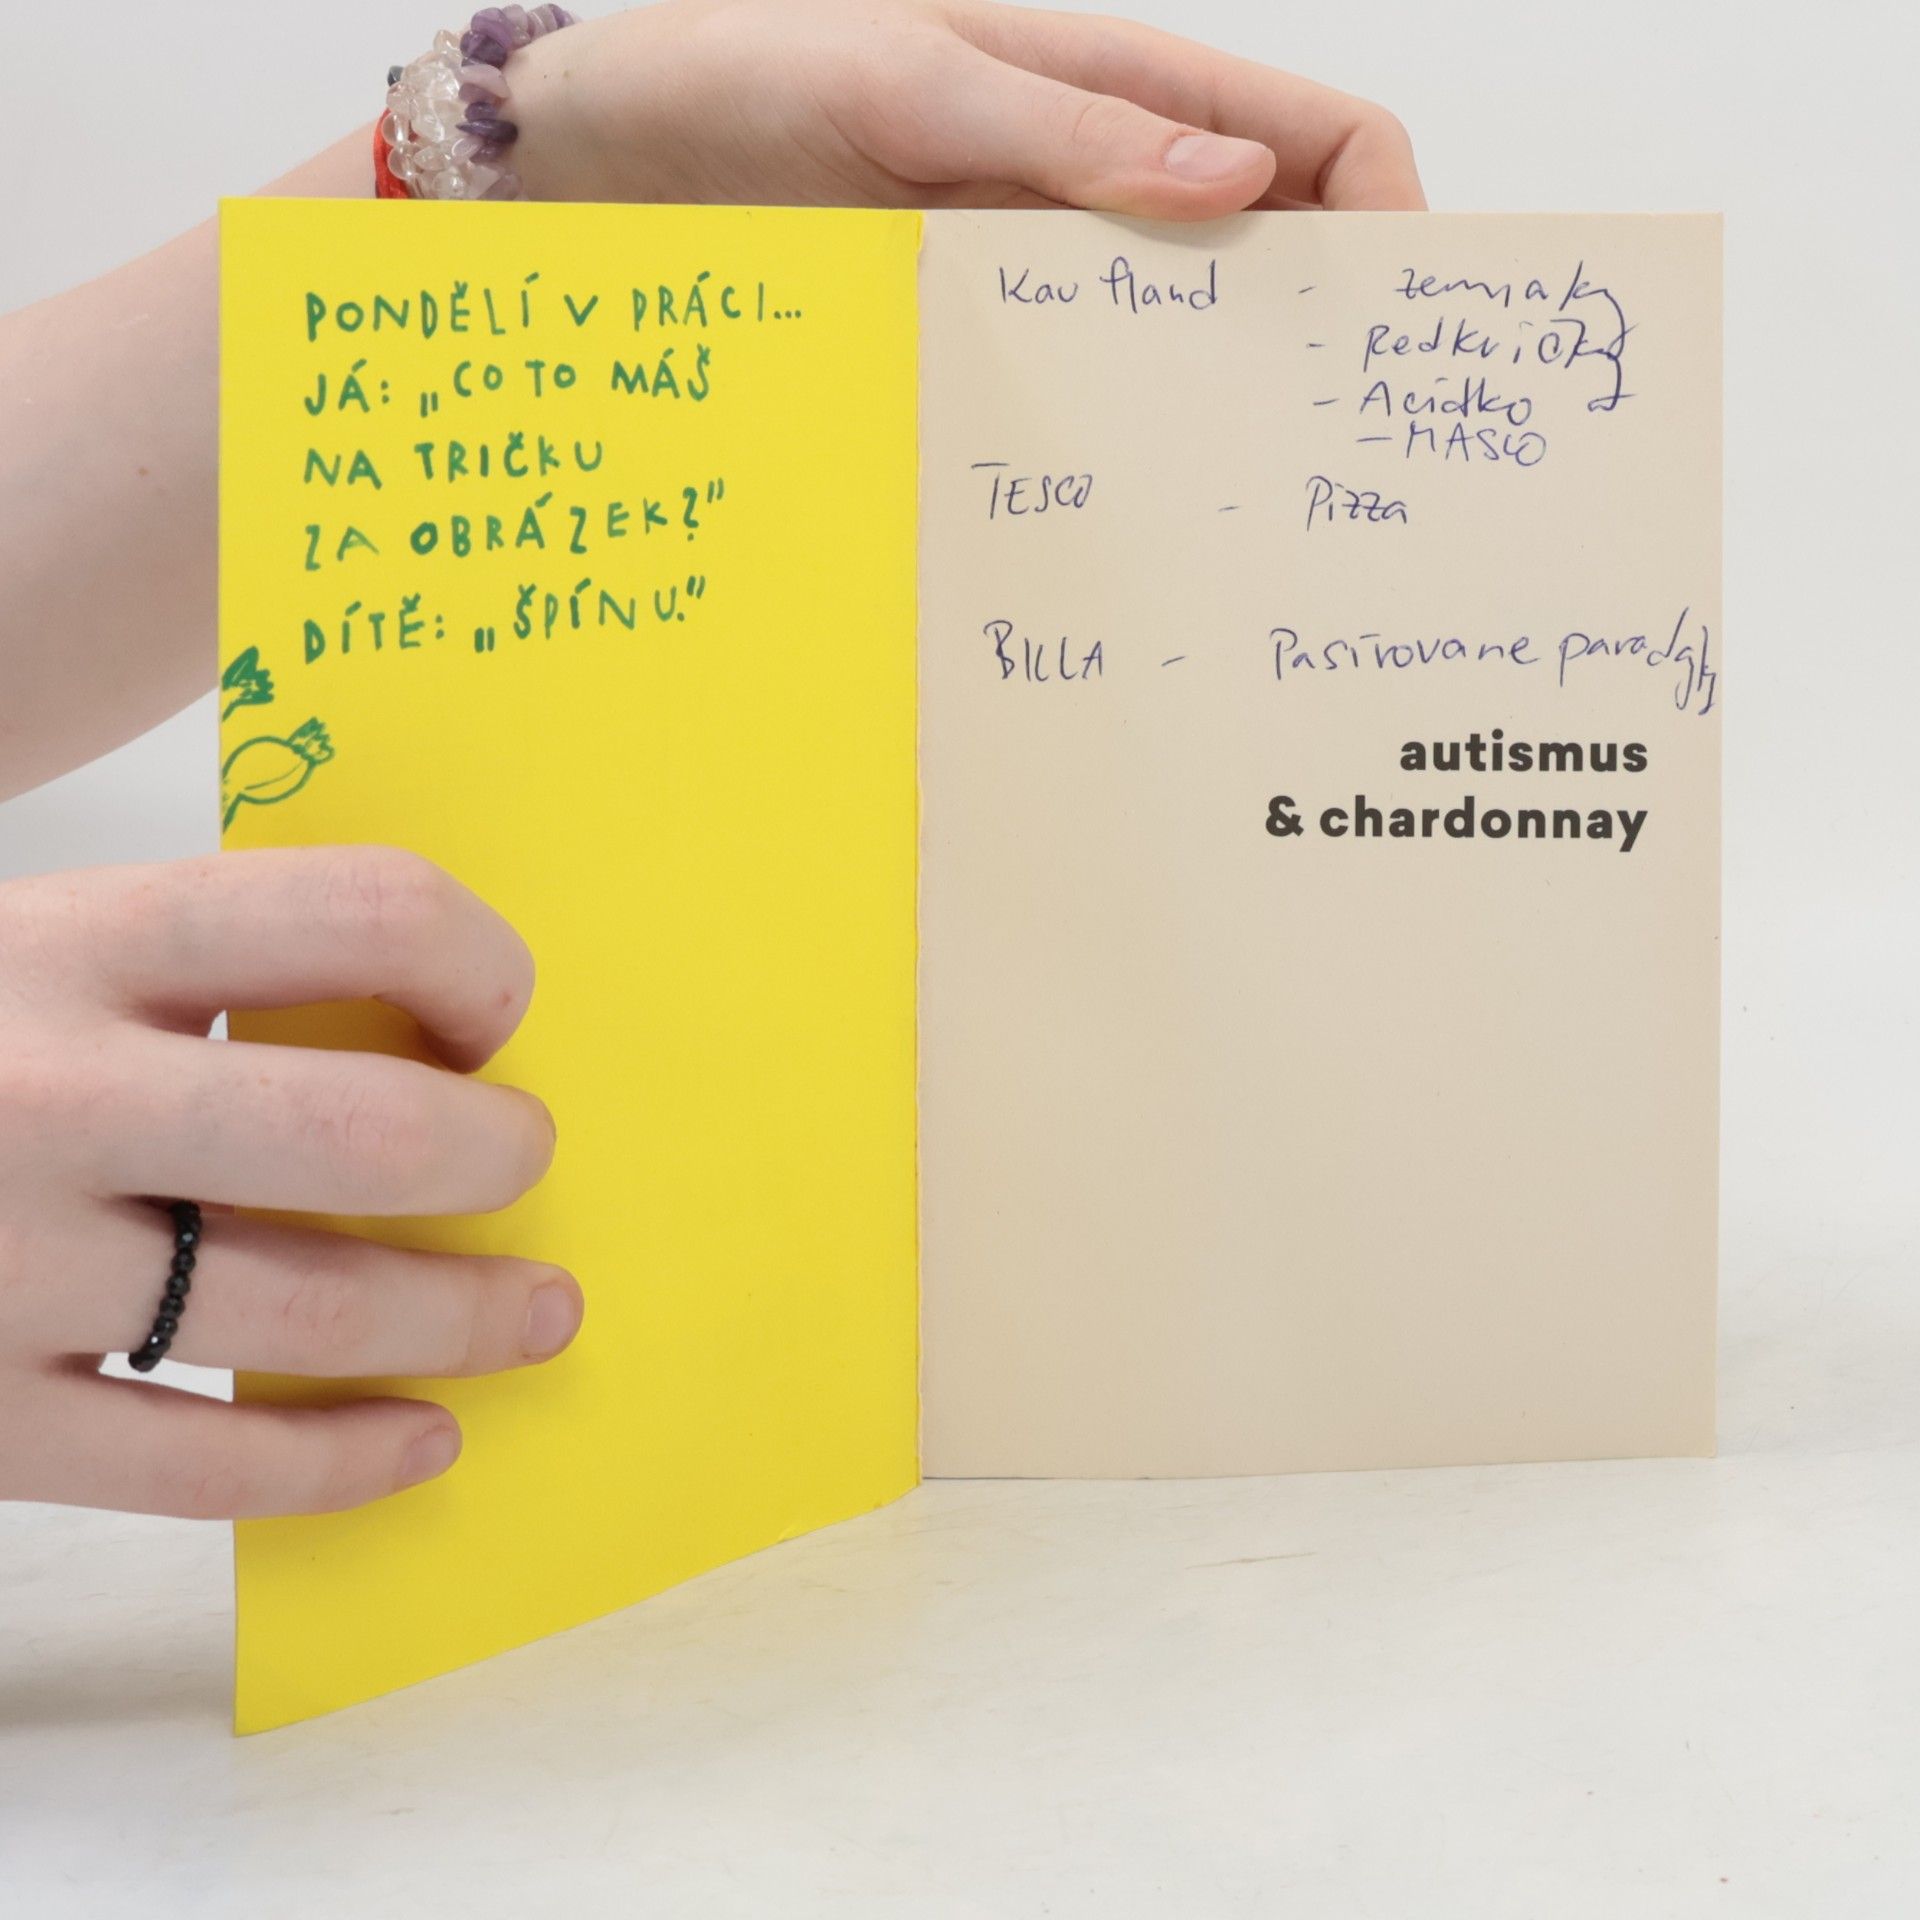 PONDĚLÍ V PRÁCI...
JÁ: „CO TO MÁŠ
NA TRIČKU
ZA OBRÁZEK?"
DÍTĚ: „ŠPÍNU."
Kaufland - zemiaky
- Redkvičky
- Acidko
- MASLO
TESCO - Pizza
BILLA - Pasírovane paradajky
autismus
& chardonnay